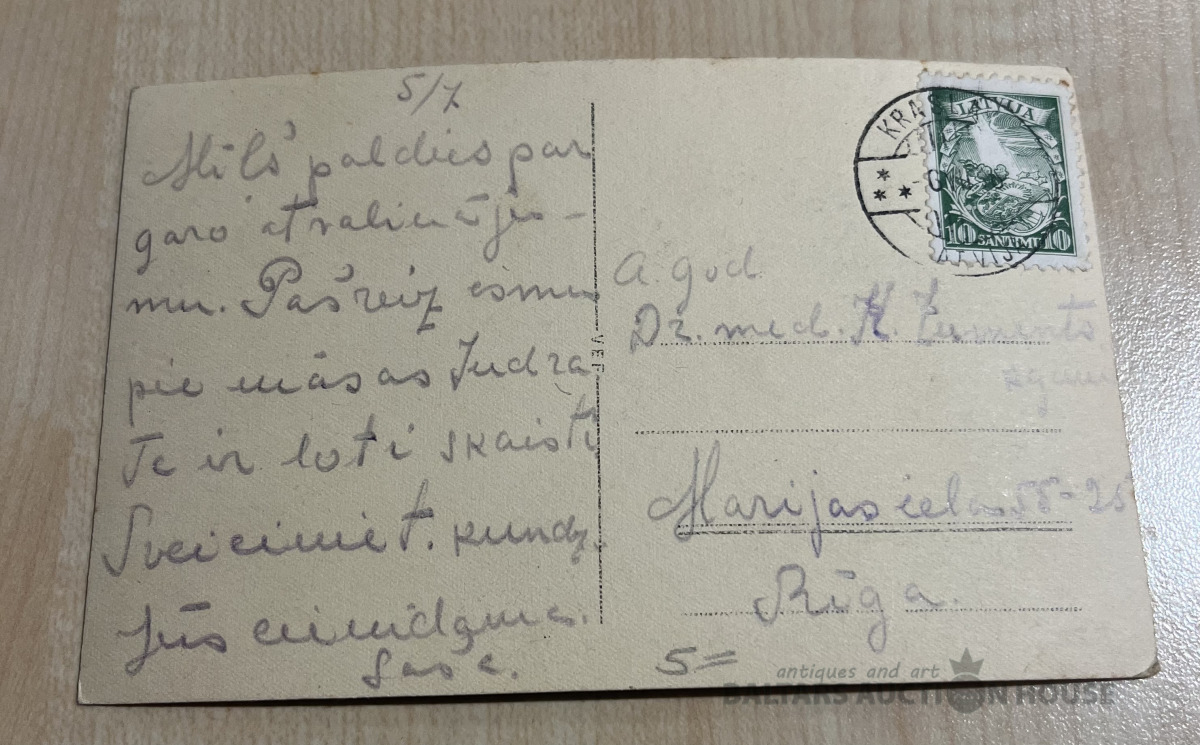 5/7
Mīļš paldies par
garo atvaļināju-
mu. Pašreiz esmu
pie māsas Indra
Te ir ļoti skaisti
Sveiciniet. kundz.
Jūs cienīdama.
KRAS
LATVIJA
10 SANTĪMI 10
LATVIJA
A. god.
Dr. med. K.
VEF
Marijas iela 55-25
Rīga.
5=
antiques and art
BALTARS AUCTION HOUSE